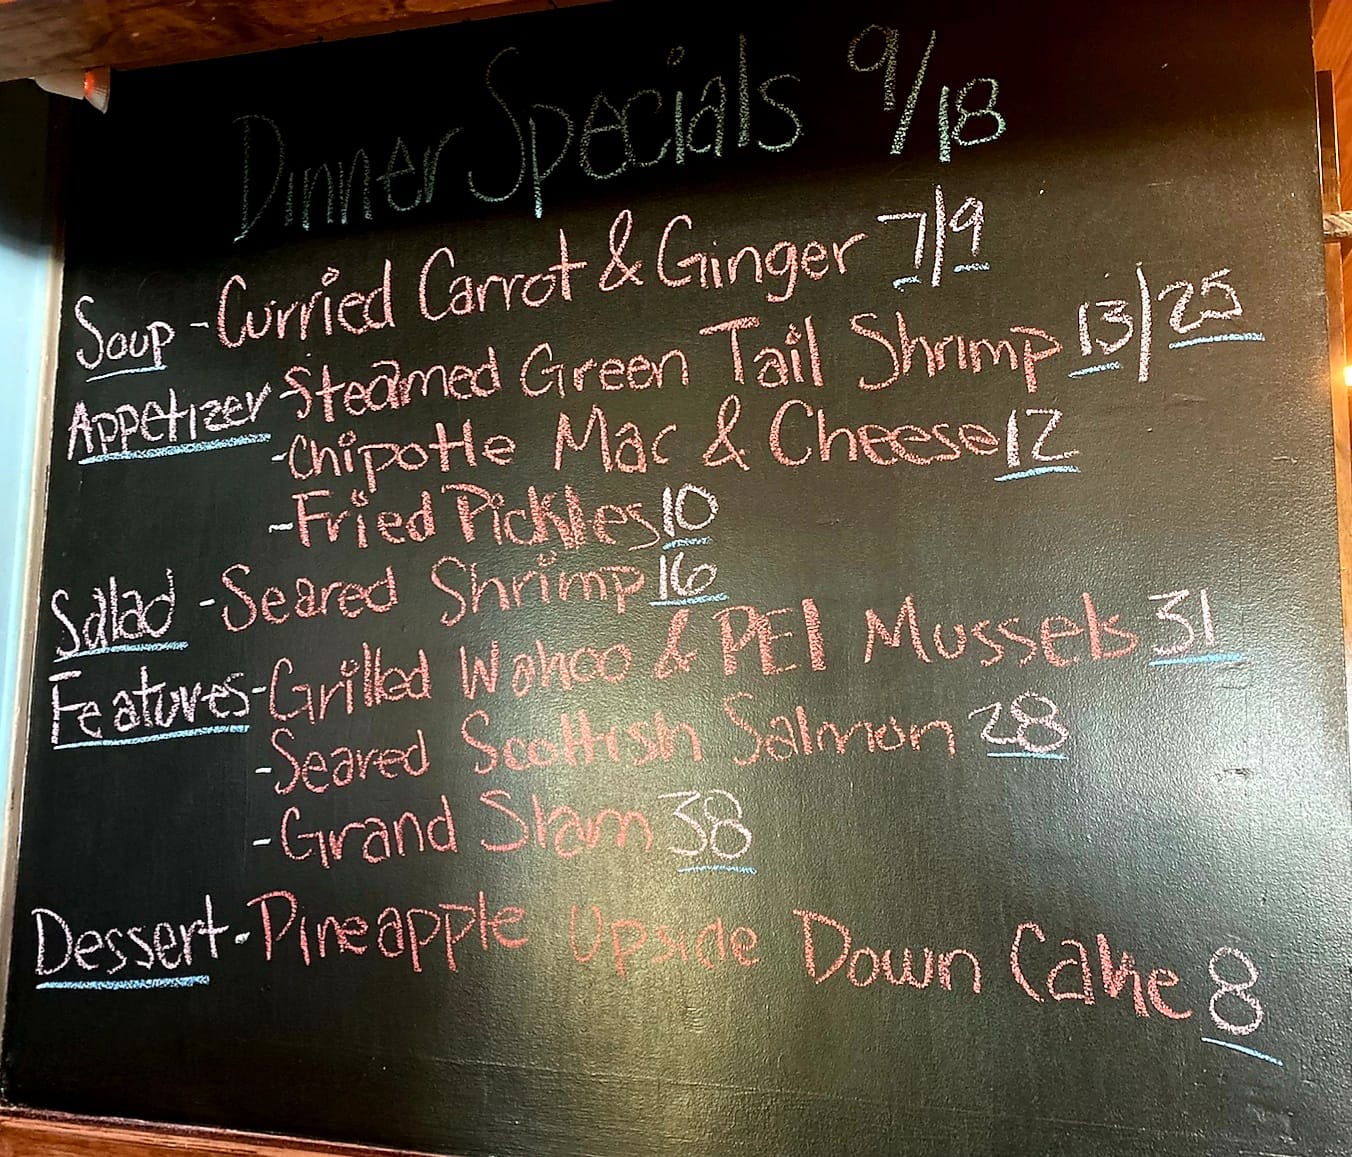 Dinner Specials 9/18
Soup - Curried Carrot & Ginger 7/9
Appetizer - Steamed Green Tail Shrimp 13/25
- Chipotle Mac & Cheese 12
- Fried Pickles 10
Salad - Seared Shrimp 16
Features - Grilled Wahoo & PEI Mussels 31
- Seared Scottish Salmon 28
- Grand Slam 38
Dessert - Pineapple Upside Down Cake 8